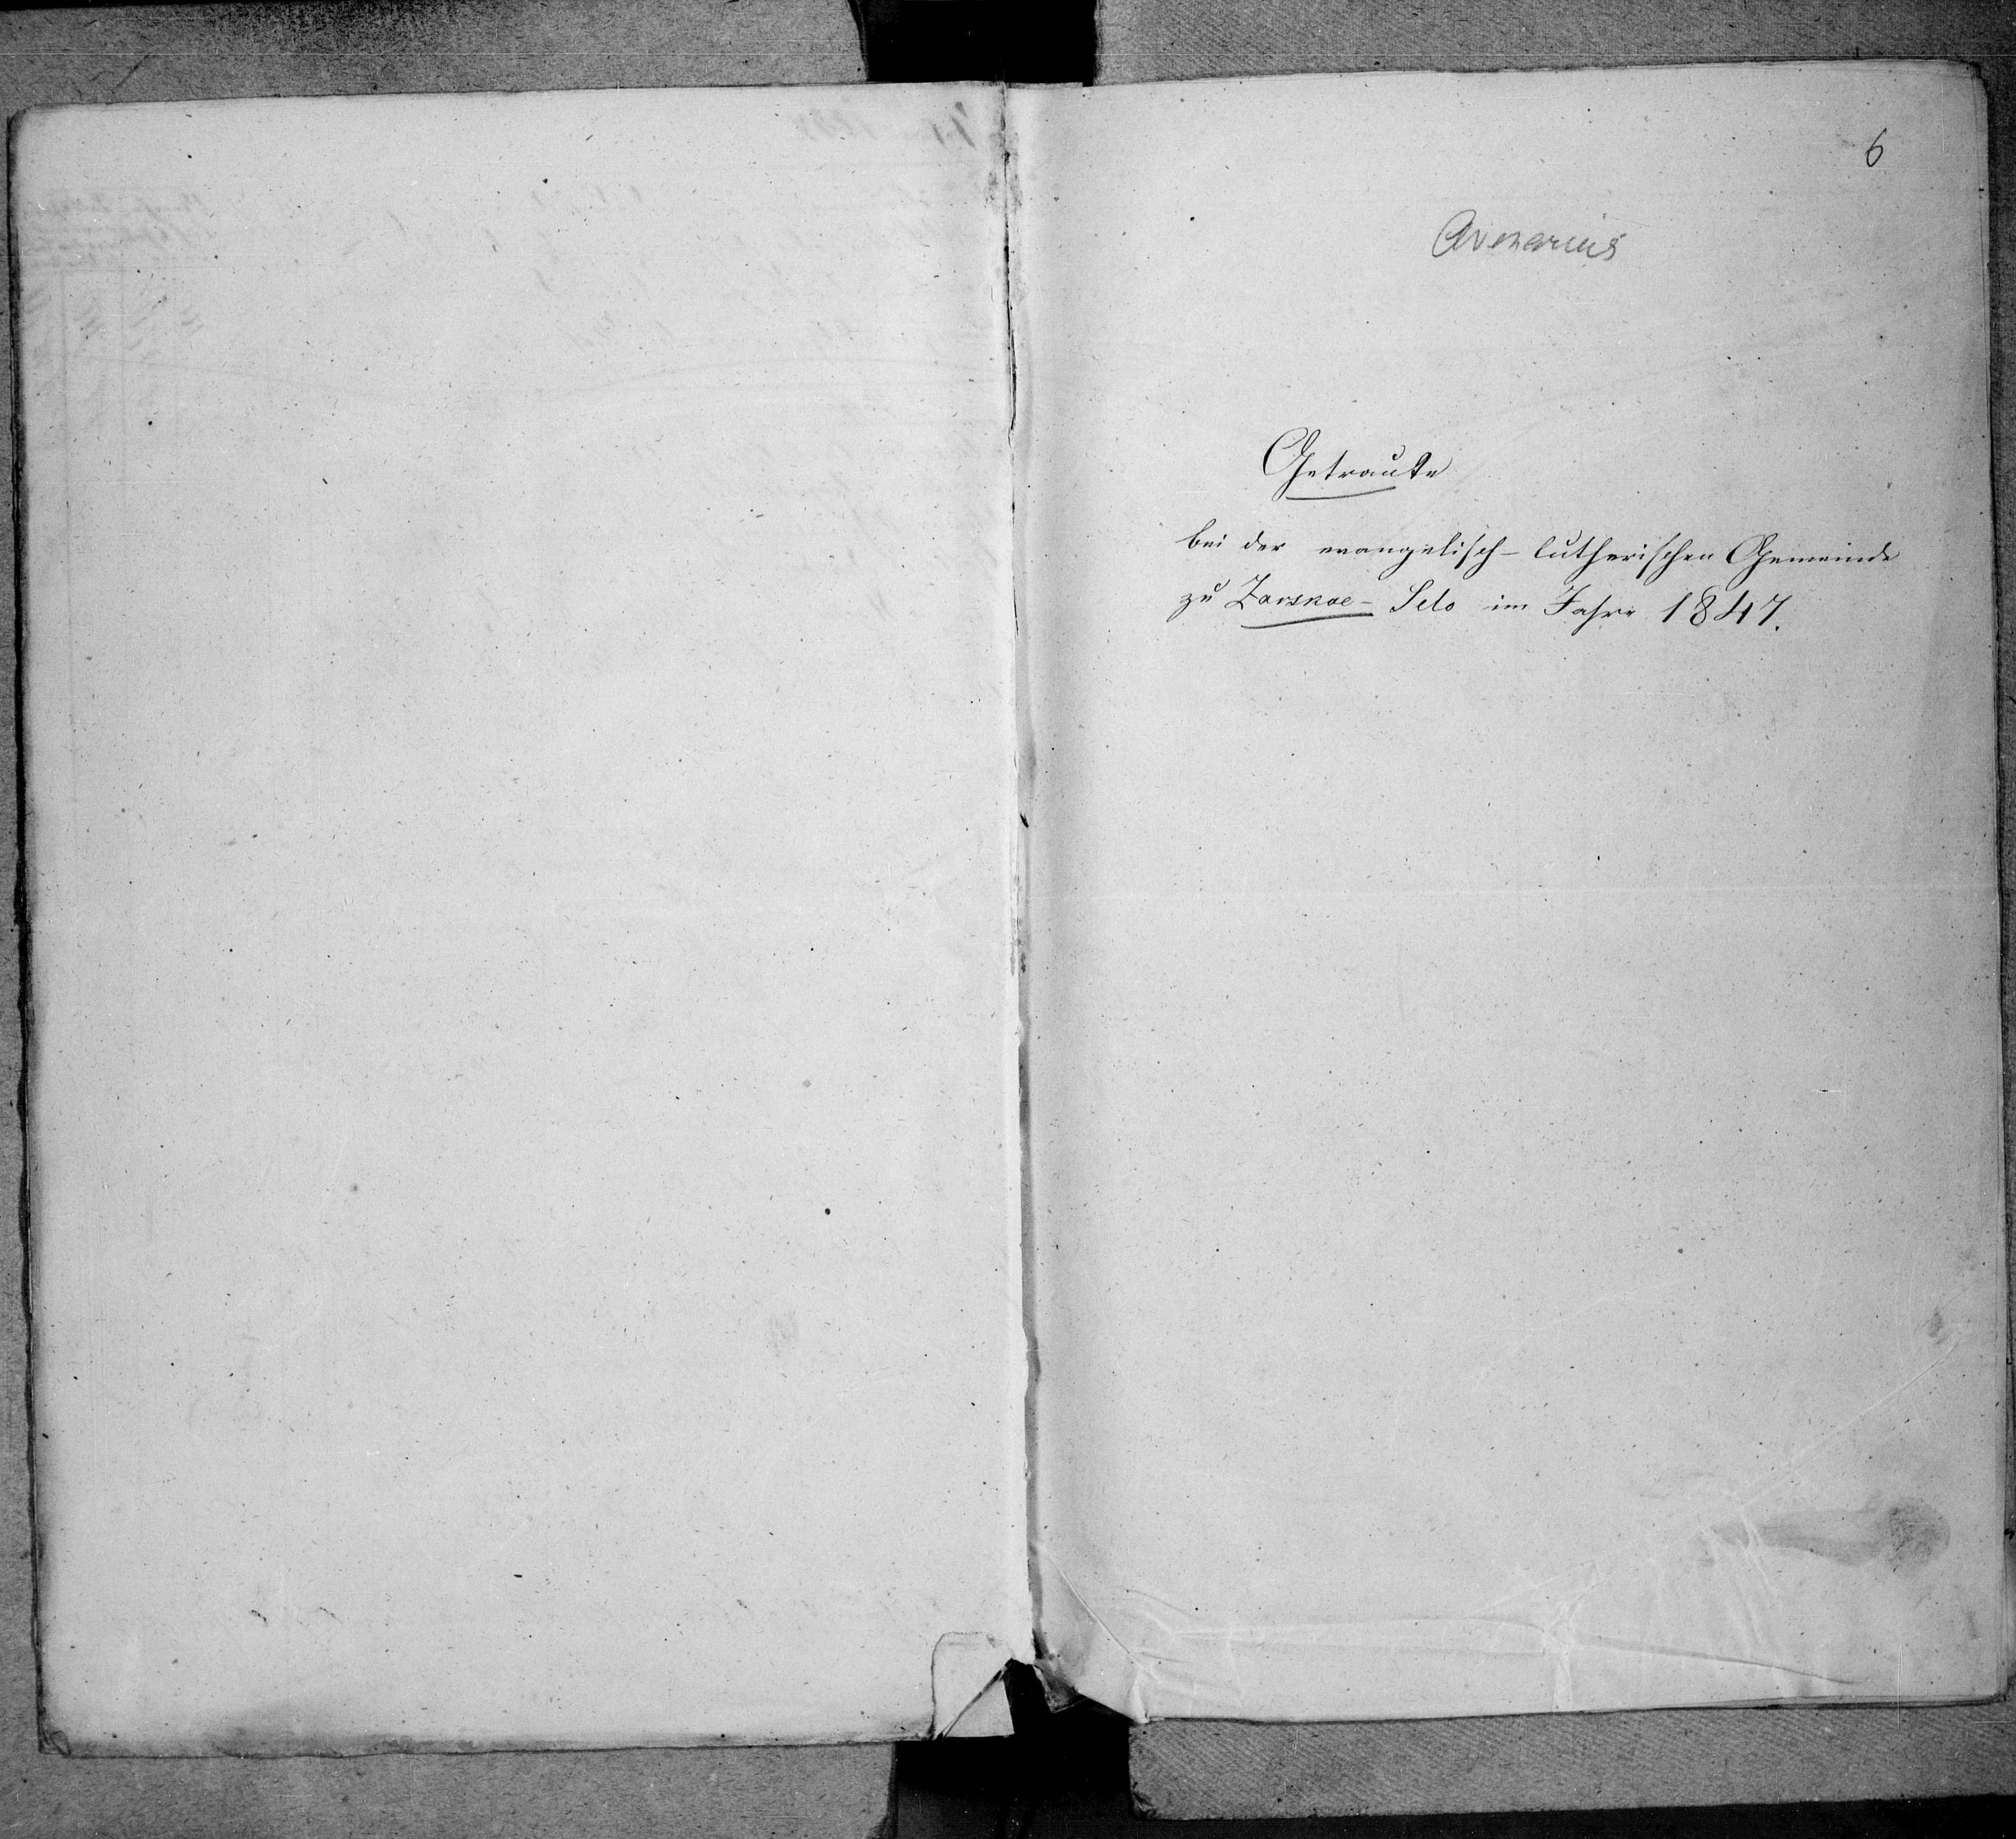 6
Avenarius
Getraute
bei der evangelisch-lutherischen Gemeinde
zu Zarskoe-Selo im Jahre 1847.